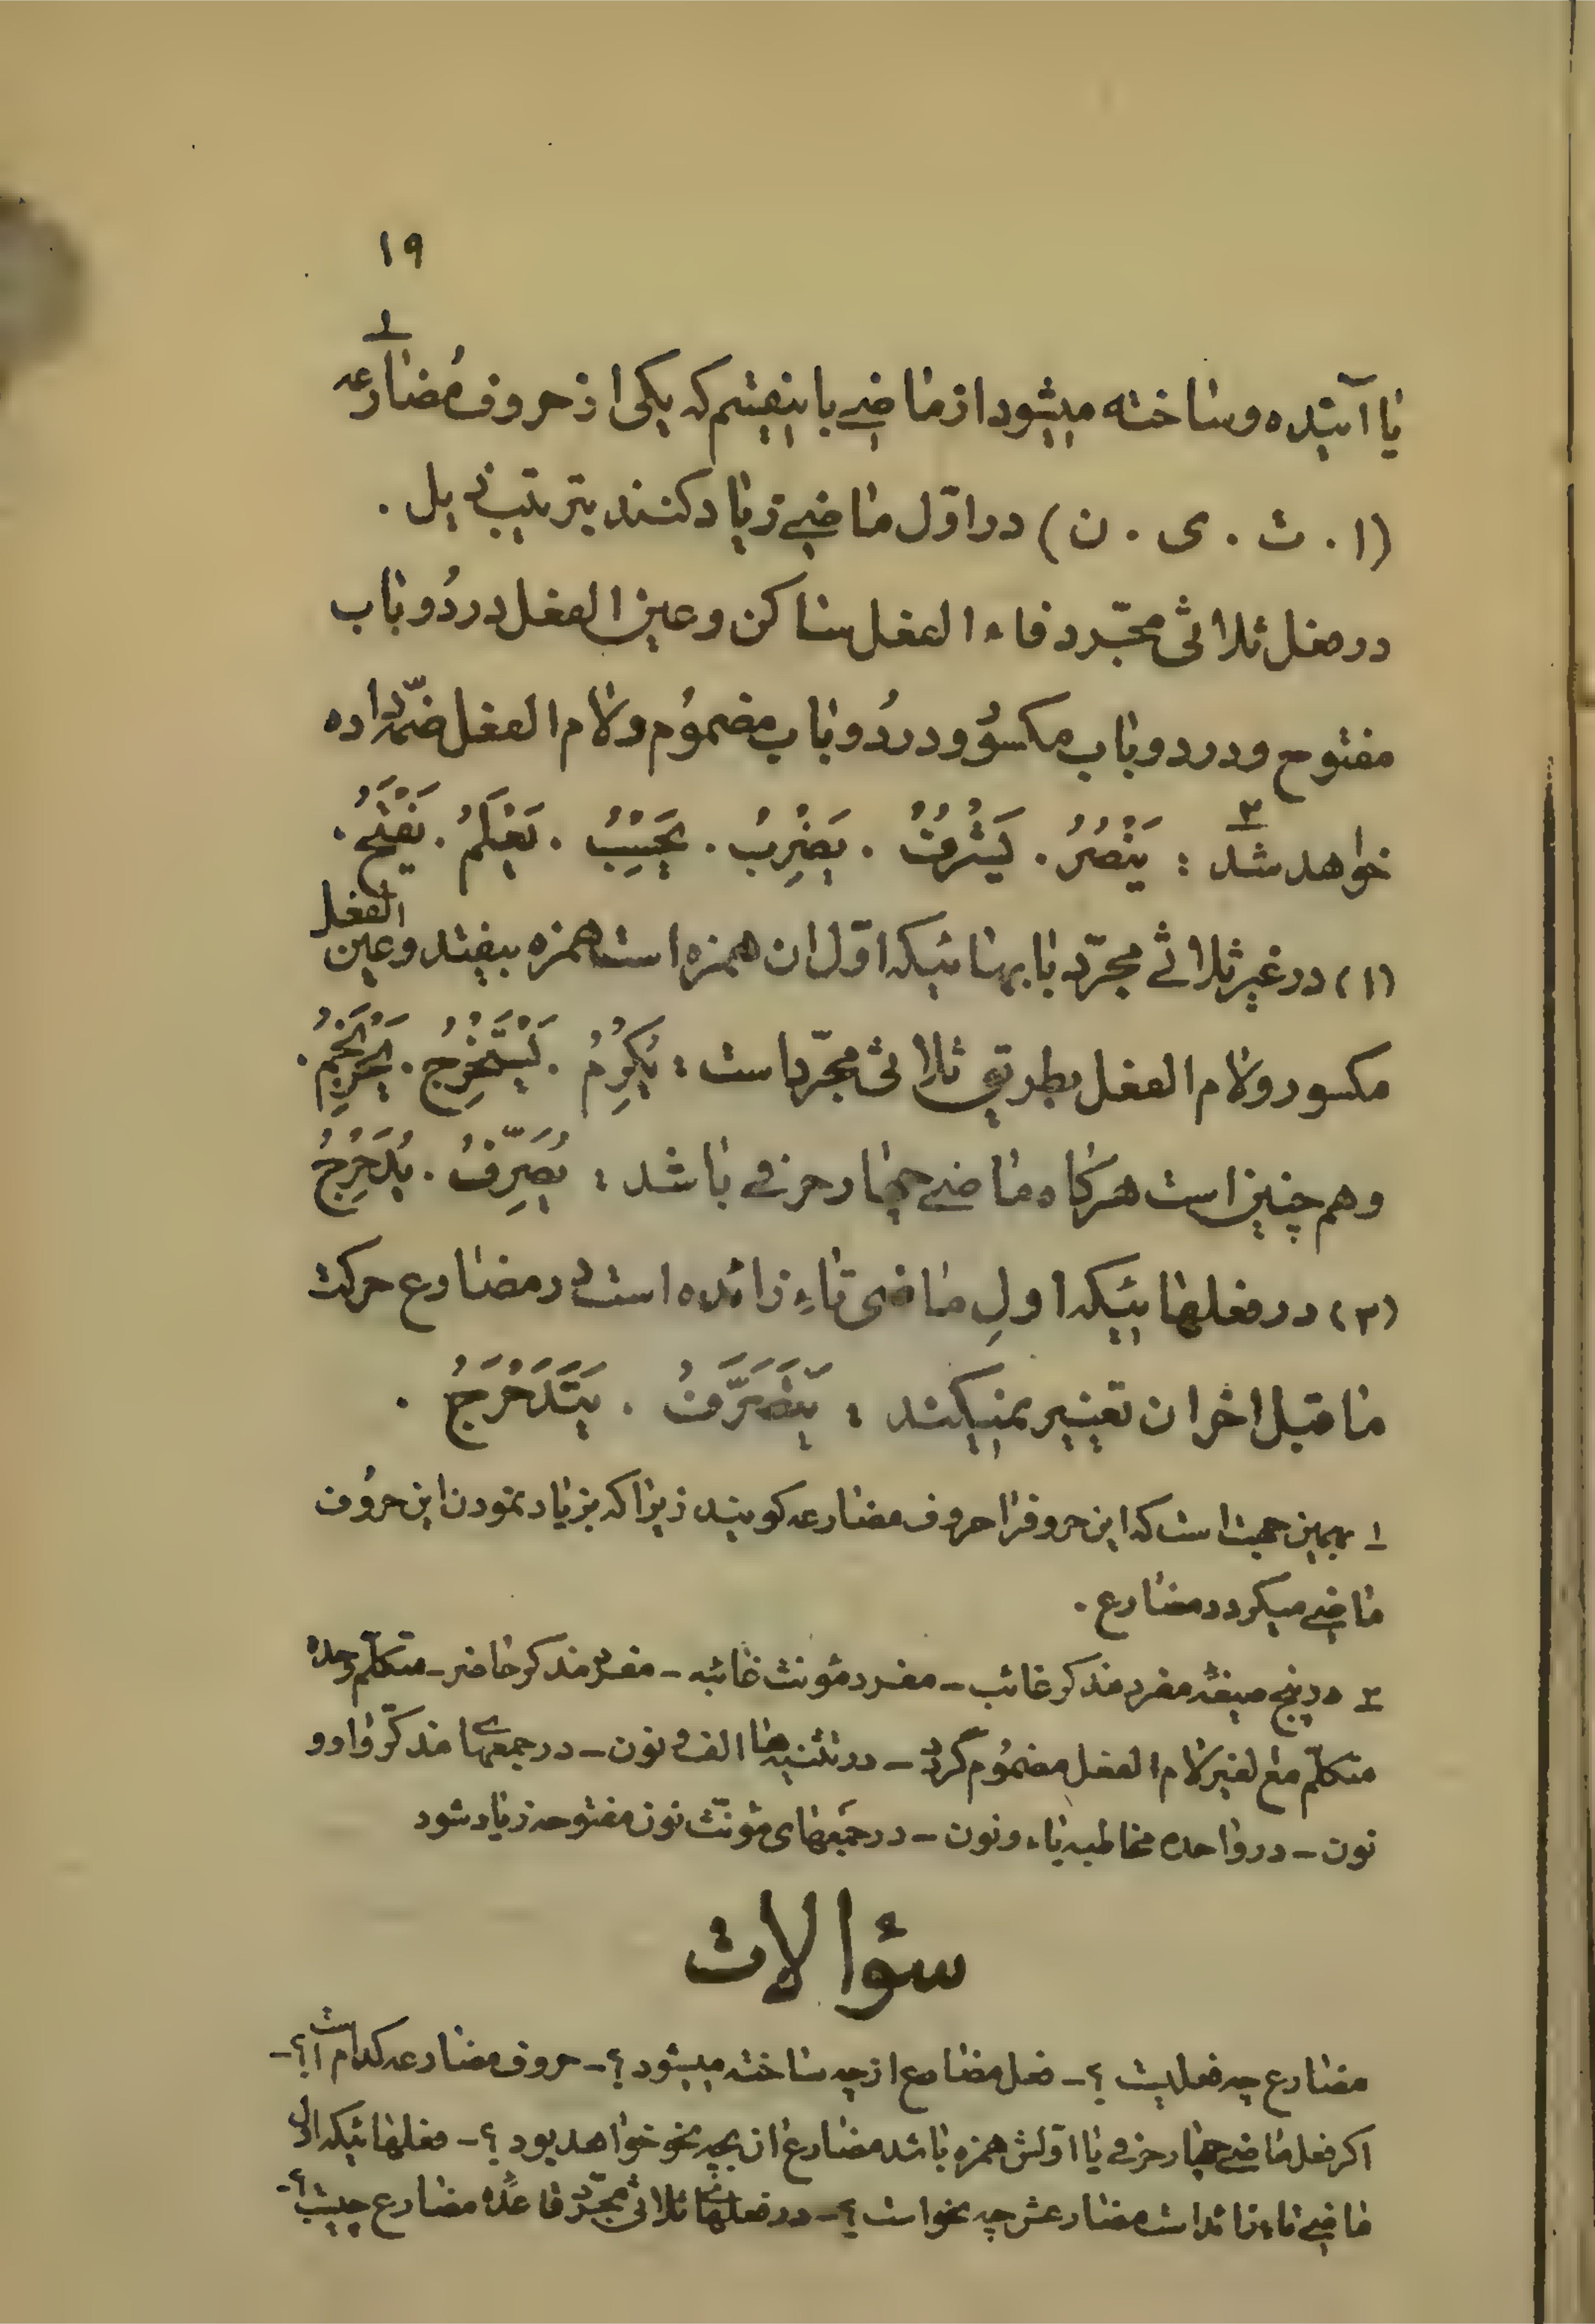 ۱۹
یا آینده و ساخته میشود از ماضی باینقسم که یکی از حروف مُضارعه ۱
(ا . ت . ی . ن) در اوّل ماضی زیاد کنند بترتیب ذیل .
در فعل ثلاثی مجّرد فاء الفعل ساکن و عین الفعل در دُو باب
مفتوح و در دو باب مکسوُر و در دُو باب مضموُم و لام الفعل ضمّه داده
خواهد شد ۲ : یَنْصُرُ . یَشْرُفُ . یَضْرِبُ . یَحْسِبُ . یَعْلَمُ . یَفْتَحُ .
(۱) در غیر ثلاثی مجرّد بابهائیکه اوّل ان همزه است همزه بیفتد و عین الفعل
مکسور و لام الفعل بطریق ثلاثی مجرّد است : یُکْرِمُ . یَسْتَخْرِجُ . یَحْرَنْجِمُ .
و هم چنین است هرکاه ماضی چهار حرفی باشد : یُصَرِّفُ . یُدَحْرِجُ
(۲) در فعلهائیکه اولِ ماضی تاءِ زائده است در مضارع حرکت
ماقبل اخر ان تغییر نمیکند : یَتَصَرَّفُ . یَتَدَحْرَجُ .
۱ بهمین جهت است که این حروفرا حروف مضارعه کویند زیرا که بزیاد نمودن این حرُوف
ماضی میکردد مضارع .
۲ در پنج صیغهٔ مفرد مذکر غائب – مفرد مؤنث غائبه – مفرد مذکر حاضر – متکلّم وحده
متکلّم مع لغیر لام الفعل مضموُم گردد – در تثنیه ها الف و نون – در جمعهای مذکّر واو و
نون – در واحده مخاطبه یاء و نون – در جمَعهای مؤنّث نون مفتوحه زیاد شود
سؤالات
مضارع چه فعلیست ؟ – فعل مضارع از چه ساخته میشود ؟ – حروف مضارعه کدام است ؟ –
اکر فعل ماضی چهار حرفی یا اوّلش همزه باشد مضارع ان بچه نحو خواهد بود ؟ – فعلهائیکه اول
ماضی تاء زائد است مضارعش چه نحو است ؟ – در فعلهای ثلاثی مجّرد قاعدهٔ مضارع چیست ؟ –